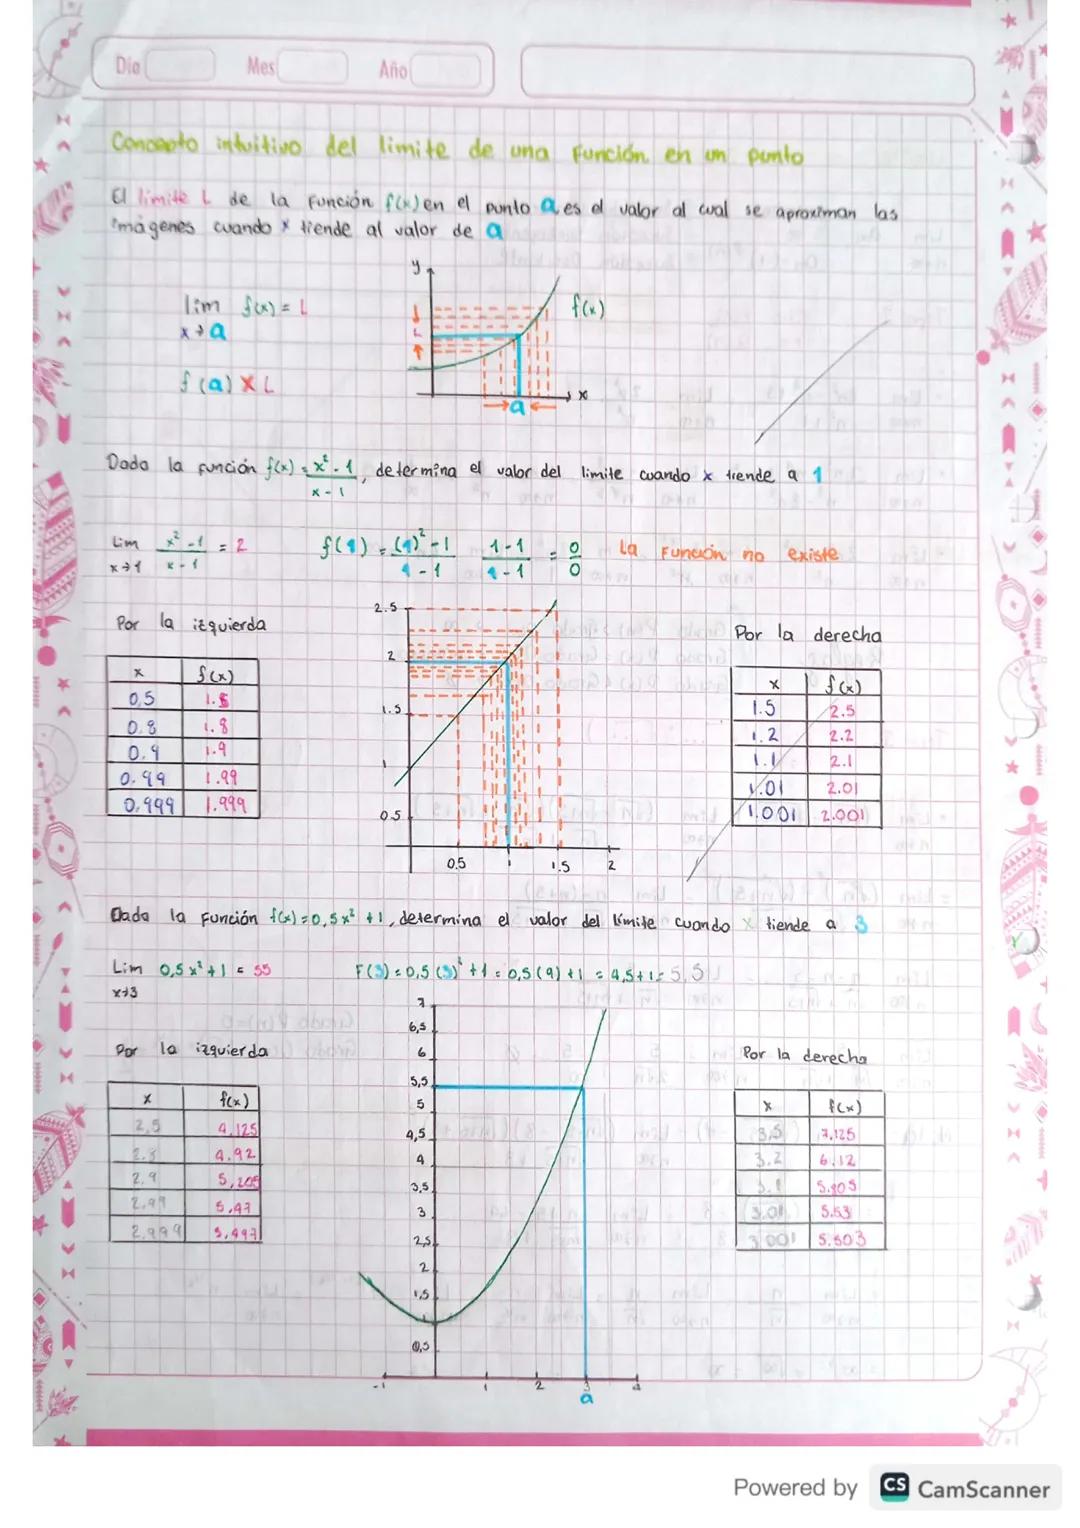 Día Mes Año
Concepto intuitivo del limite de una Función en un punto
El limite L de la Función f(x) en el punto a es el valor al cual se aproximan las
imágenes cuando x tiende al valor de a
lim f(x) = L
x → a
f(a) X L
y
L
f(x)
x
a
Dada la función f(x) = x² - 1 / x - 1, determina el valor del limite cuando x tiende a 1
Lim x² - 1 / x - 1 = 2
x→1
f(1) = (1)² - 1 / 1 - 1
1 - 1 / 1 - 1 = 0 / 0
La Función no existe
Por la izquierda
x f(x)
0,5 1.5
0.8 1.8
0.9 1.9
0.99 1.99
0,999 1.999
2.5
2
1.5
1
0.5
0.5 1 1.5 2
Por la derecha
x f(x)
1.5 2.5
1.2 2.2
1.1 2.1
1.01 2.01
1.001 2.001
Dada la Función f(x) = 0,5x² + 1, determina el valor del límite cuando x tiende a 3
Lim 0,5x² + 1 = 55
x→3
F(3) = 0,5(3)² + 1 = 0,5(9) + 1 = 4,5 + 1 = 5,5
Por la izquierda
x f(x)
2,5 4.125
2.8 4.92
2.9 5,205
2.99 5.47
2.999 5,497
7
6,5
6
5,5
5
4,5
4
3,5
3
2,5
2
1,5
1
0,5
-1 1 2 3 4
a
Por la derecha
x f(x)
3,5 7,125
3.2 6.12
3.1 5.805
3.01 5.53
3.001 5.503
Powered by CS CamScanner